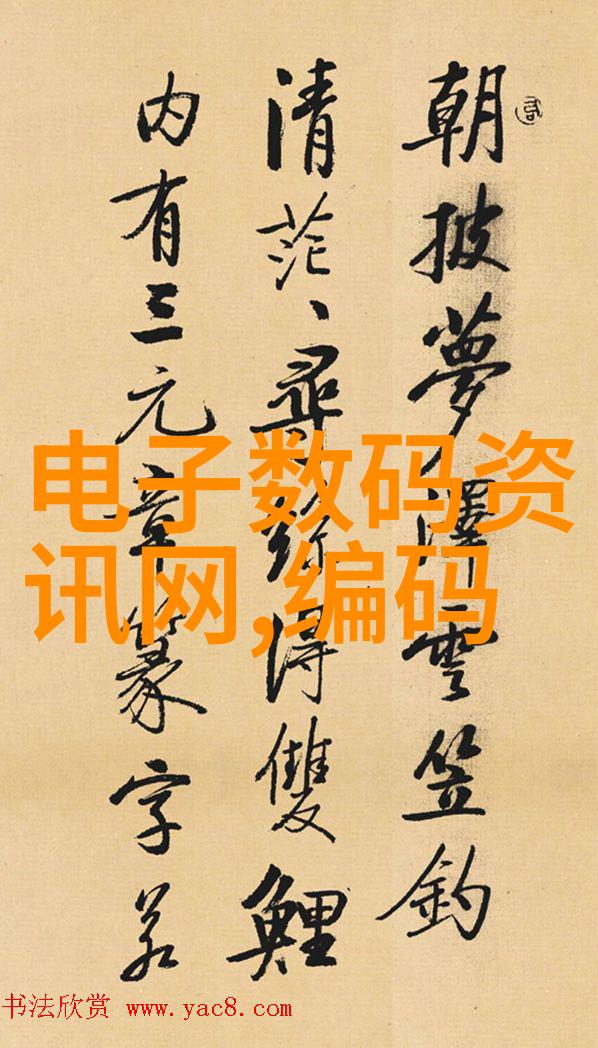 朝披夢澤雲笠釣
清茫〻尋絲得雙鯉
内有三元章篆字若
电子数码资
讯网,编码
书法欣赏 www.yac8.com